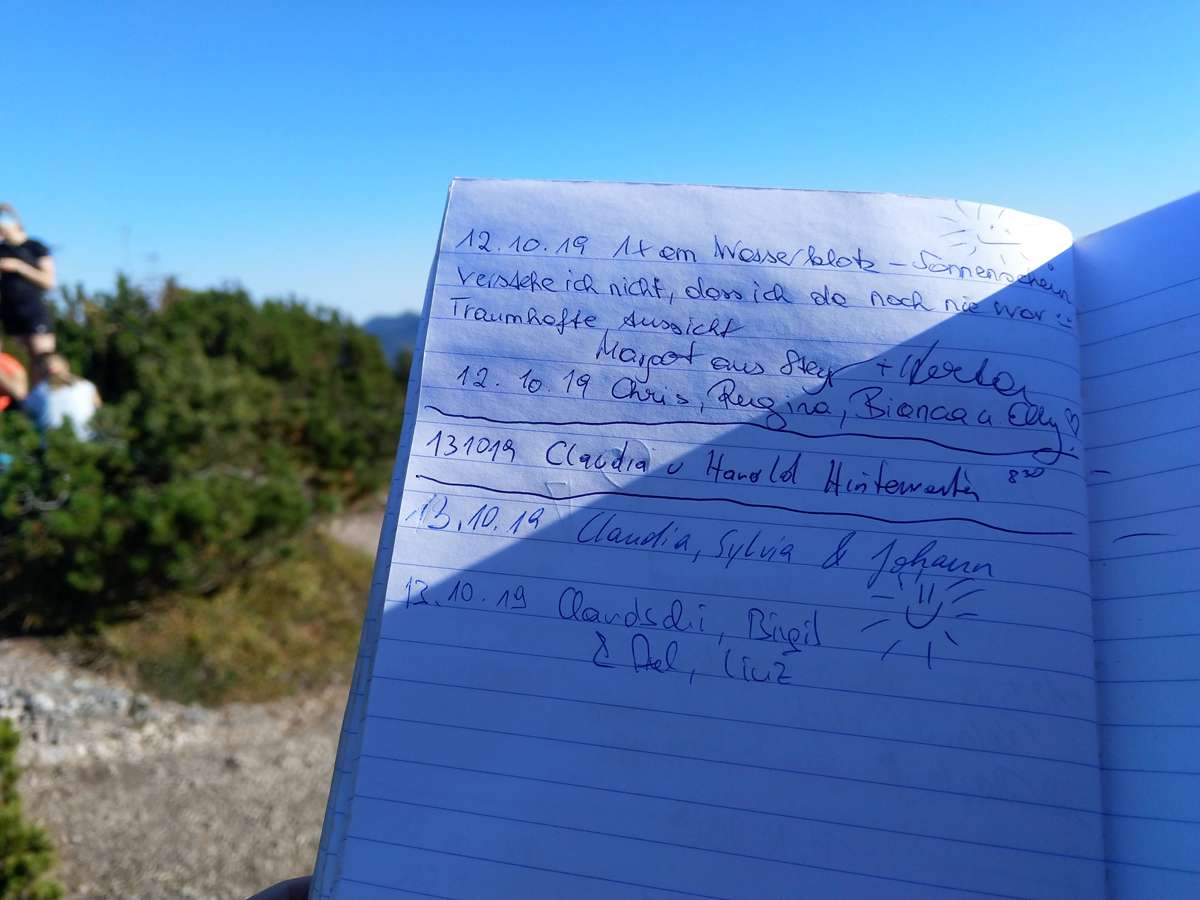 12.10.19 1x am Wasserklotz – Sonnenschein
verstehe ich nicht, dass ich da noch nie war :-)
Traumhafte Aussicht
Margot aus Steyr +
12.10.19 Chris, Regina, Bianca u. Elly ♡
131019 Claudia u Harold 8³⁰
13.10.19 Claudia, Sylvia & Johann
13.10.19 Birgit
&